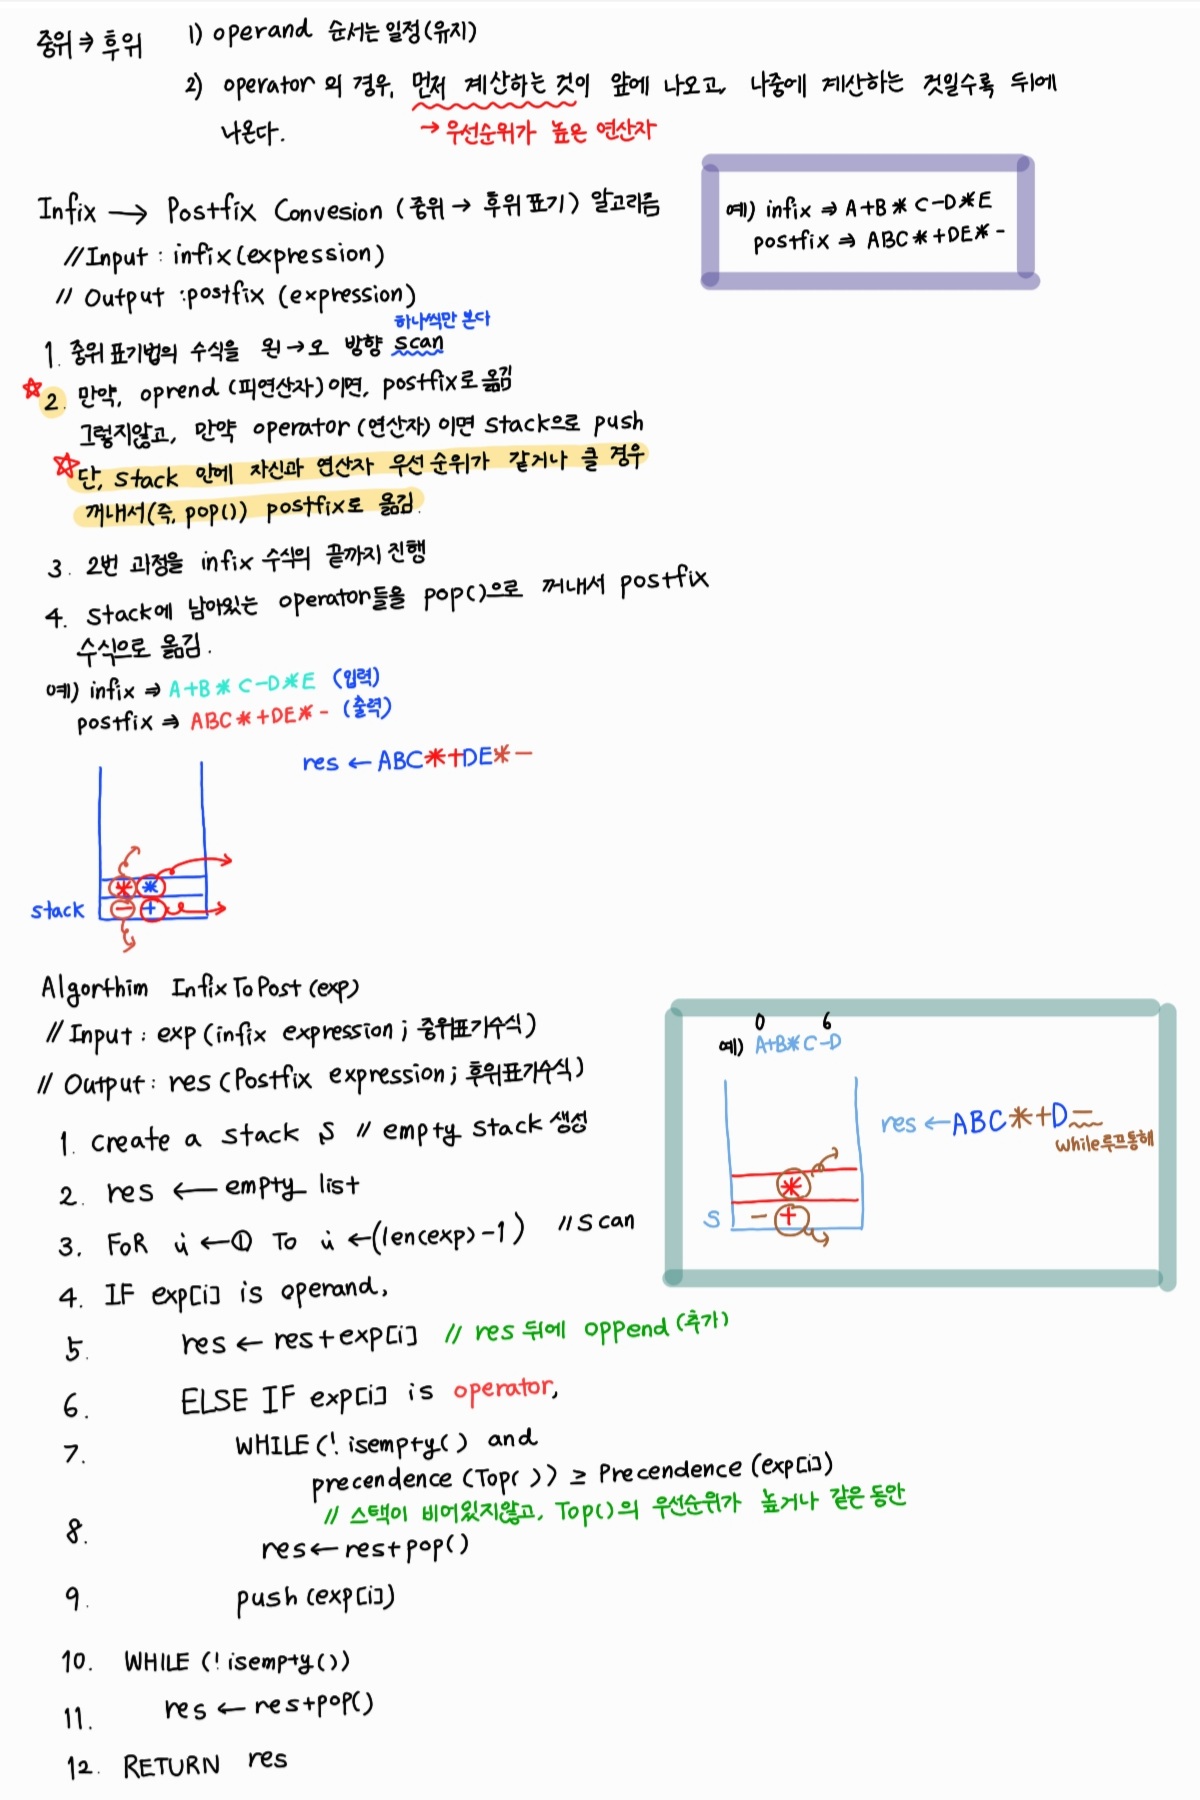 중위 ⇒ 후위
1) operand 순서는 일정(유지)
2) operator 의 경우, 먼저 계산하는 것이 앞에 나오고, 나중에 계산하는 것일수록 뒤에
나온다.
→ 우선순위가 높은 연산자
Infix → Postfix Convesion (중위 → 후위 표기) 알고리즘
예) infix ⇒ A+B*C-D*E
postfix ⇒ ABC*+DE*-
//Input : infix(expression)
// Output :postfix (expression)
하나씩만 본다
1. 중위 표기법의 수식을 왼→오 방향 scan
☆ 2. 만약, oprend (피연산자)이면, postfix로 옮김
그렇지않고, 만약 operator (연산자) 이면 stack으로 push
☆ 단, stack 안에 자신과 연산자 우선 순위가 같거나 클 경우
꺼내서(즉, pop()) postfix로 옮김.
3. 2번 과정을 infix 수식의 끝까지 진행
4. stack에 남아있는 operator들을 pop()으로 꺼내서 postfix
수식으로 옮김.
예) infix ⇒ A+B*C-D*E (입력)
postfix ⇒ ABC*+DE*- (출력)
res ← ABC*+DE*-
* *
stack - +
Algorthim InfixToPost(exp)
// Input : exp (infix expression ; 중위표기수식)
// Output : res (Postfix expression ; 후위표기수식)
1. create a stack S // empty stack 생성
2. res ← empty list
3. FOR i ← 0 To i ← (lencexp)-1) // scan
4. IF exp[i] is operand,
5. res ← res+exp[i] // res 뒤에 oppend (추가)
6. ELSE IF exp[i] is operator,
7. WHILE(! isempty() and
precendence (Top( )) ≥ Precendence (exp[i])
// 스택이 비어있지않고, Top()의 우선순위가 높거나 같은 동안
8.
res ← res+pop()
9. push (exp[i])
10. WHILE (! isempty())
11. res ← res+pop()
12. RETURN res
0 6
예) A+B*C-D
res ← ABC*+D-
while루프통해
*
S - +